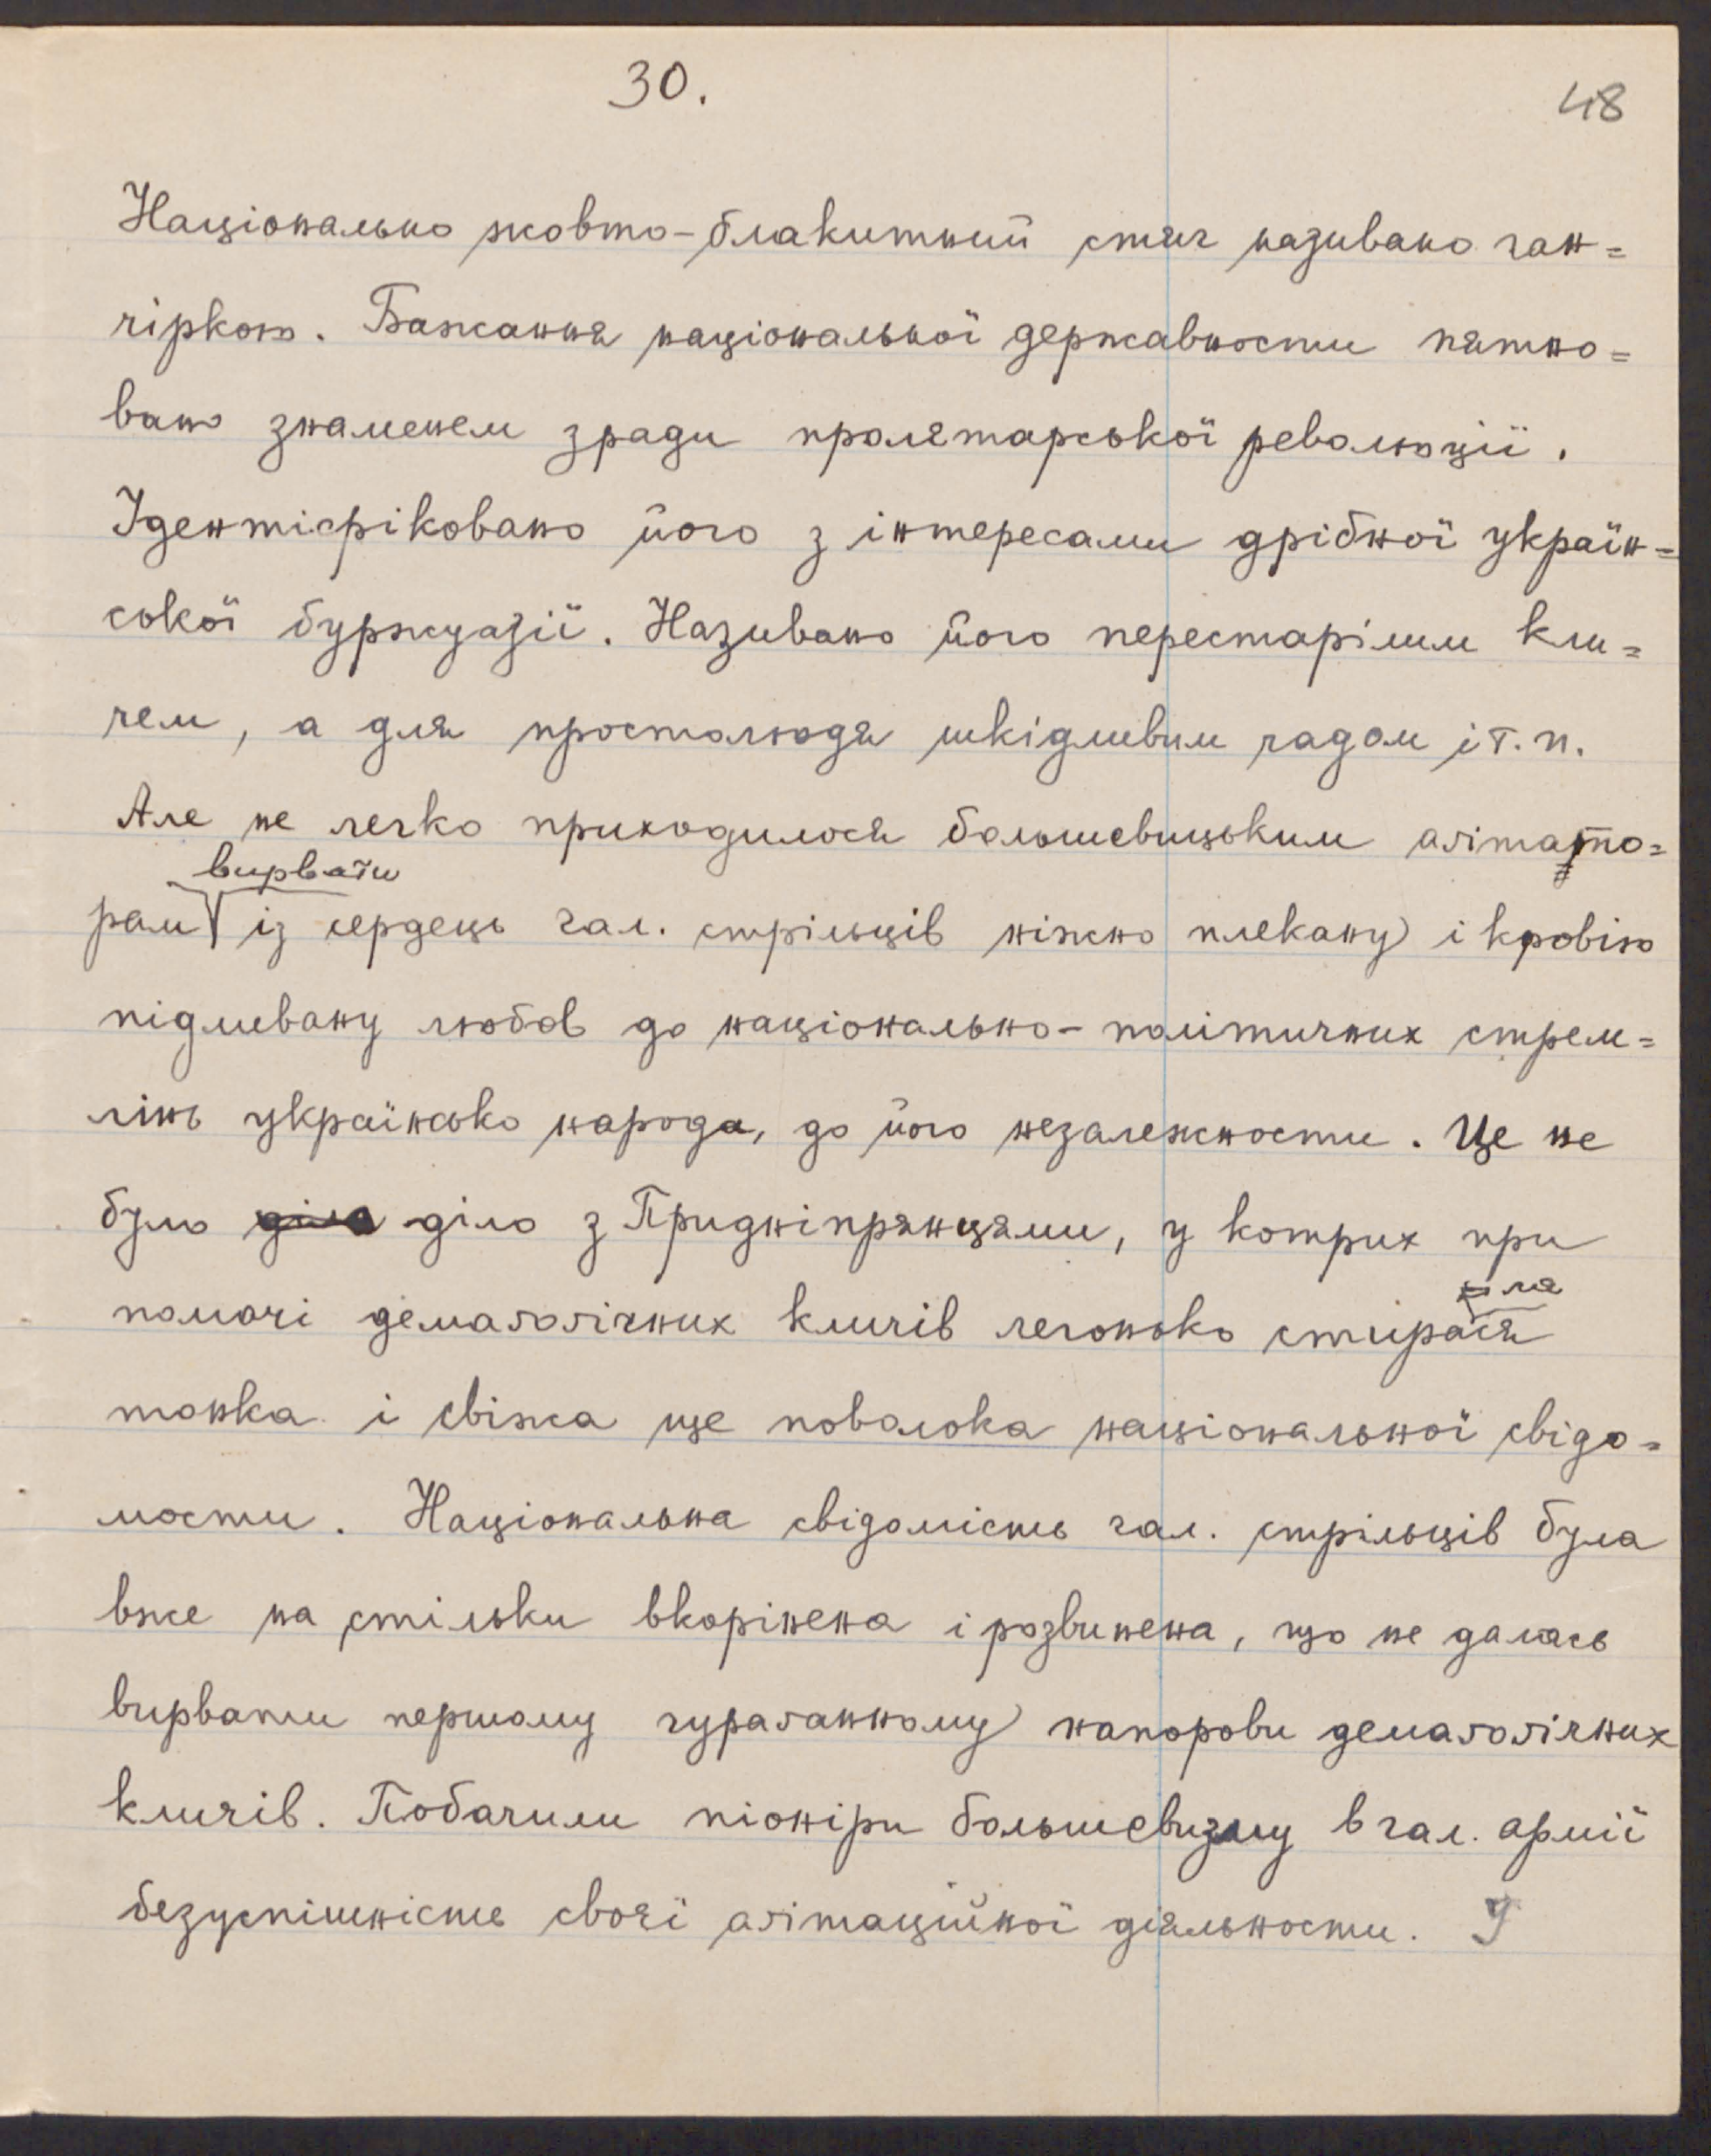 30.
48
Національно жовто-блакитний стяг називано ган=
чіркою. Бажання національної державности пятно=
вано знаменем зради пролятарської революції.
Ідентіфіковано його з інтересами дрібної україн=
ської буржуазії. Називано його перестарілим кли=
чем, а для простолюдя шкідливим чадом і т. п.
Але не легко приходилося большевицьким аґітато=
вирвати
рам із сердець гал. стрільців ніжно плекану і кровію
підливану любов до національно-політичних стрем=
лінь українсько народа, до його незалежности. Це не
було діло діло з Придніпрянцями, у котрих при
ла
помочі демаґоґічних кличів легонько стирася
тонка і свіжа ще поволока національної свідо=
мости. Національна свідомість гал. стрільців була
вже на стільки вкорінена і розвинена, що не далась
вирвати першому гураґанному напорови демаґоґічних
кличів. Побачили піоніри большевизму в гал. армії
безуспішність своєї аґітаційної діяльности. І